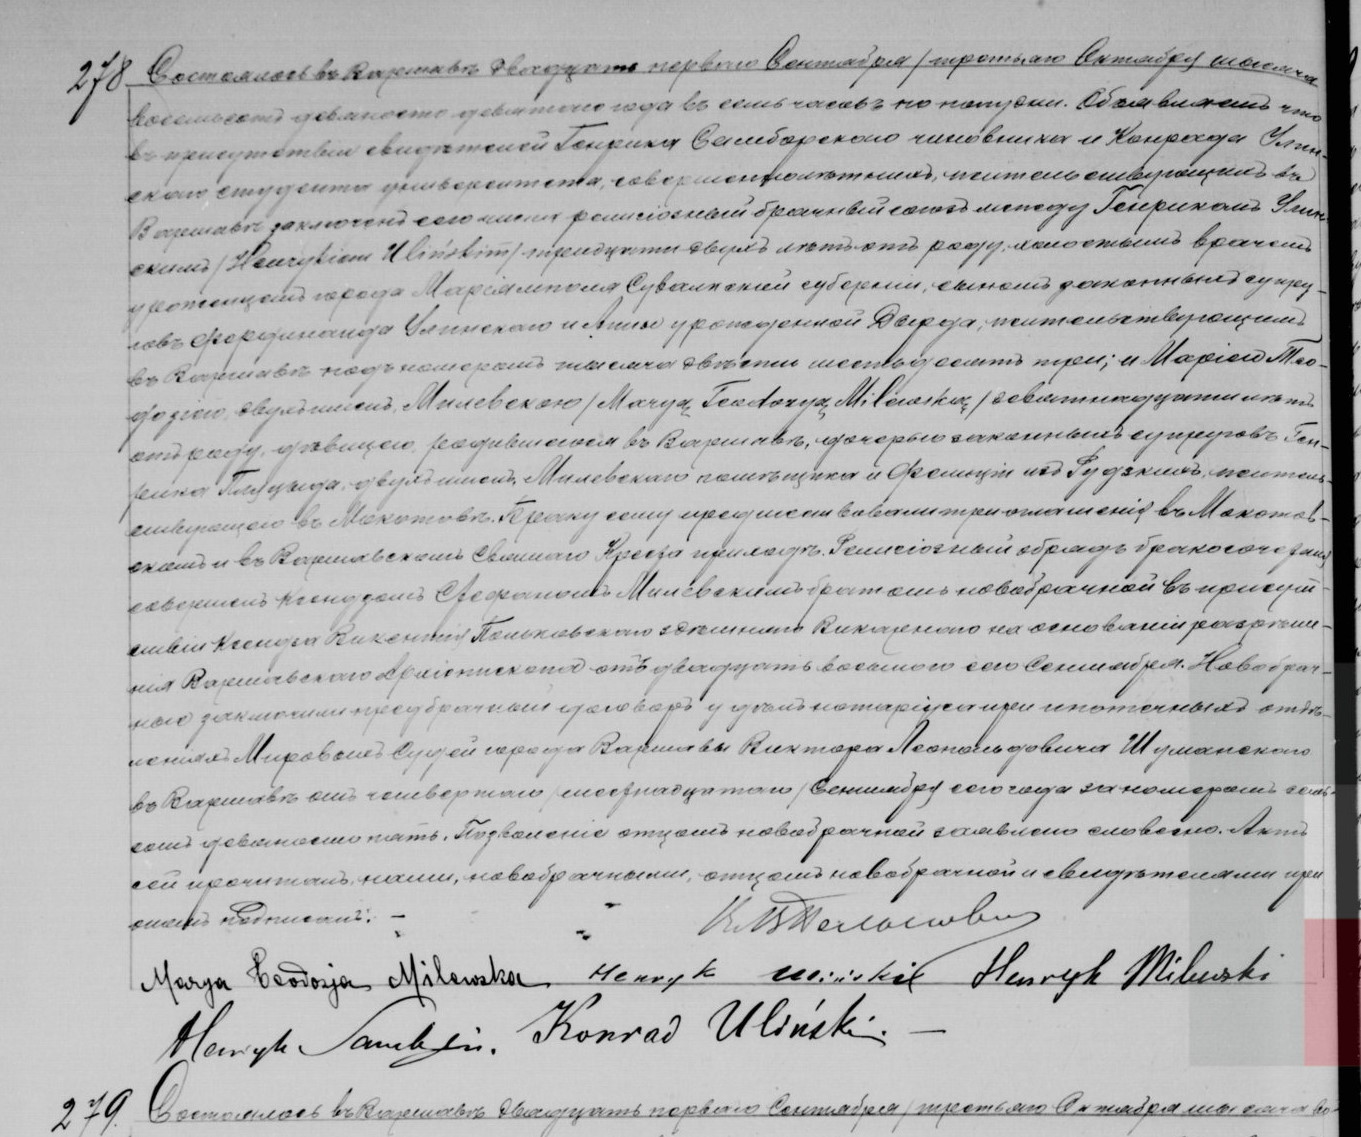 278 Состоялось въ Варшавѣ двадцать перваго Сентября / третьяго Октября тысяча
восемьсотъ девяносто девятаго года въ семь часовъ по полудни. Объявляемъ что
въ присутствіи свидѣтелей Генрика Самборскаго чиновника и Конрада Улин-
скаго студента университета, совершеннолѣтнихъ, жительствующихъ въ
Варшавѣ заключенъ сего числа религіозный брачный союзъ между Генрикомъ Улин-
скимъ / Henrykiem Ulińskim / тридцати двухъ лѣтъ отъ роду, холостымъ врачемъ
уроженцемъ города Маріамполя Сувалкской губерніи, сыномъ законныхъ супру-
говъ Фердинанда Улинскаго и Анны урожденной жительствующимъ
въ Варшавѣ подъ номеромъ тысяча двѣсти шестьдесятъ три; и Маріею Тео-
дозіею, двухъ именъ, Милевскою / Maryą Teodozyą Milewską / девятнадцати лѣтъ
отъ роду, дѣвицею, родившеюся въ Варшавѣ, дочерью законныхъ супруговъ Ген-
рика двухъ именъ, Милевскаго помѣщика и Фелиціи изъ Рудзкихъ, житель-
ствующею въ Мокотовѣ. Браку сему предшествовали три оглашенія въ Мокотов-
скомъ и въ Варшавскомъ Святаго Креста приходѣ. Религіозный обрядъ бракосочетанія
совершенъ Ксендзомъ Стефаномъ Милевскимъ братомъ новобрачной въ присут-
ствіи Ксендза Викентія здѣшняго Викарнаго на основаніи разрѣше-
нія Варшавскаго Архіепископа отъ двадцать восьмого сего Сентября. Новобрач-
ные заключили предбрачный договоръ у нотаріуса при ипотечныхъ отдѣ-
леніяхъ Мировыхъ Судей города Варшавы Виктора Леопольдовича Шуманскаго
въ Варшавѣ отъ четвертаго / шестнадцатаго / Сентября сего года за номеромъ семь-
сотъ девяносто пять. Позволеніе отцомъ новобрачной заявлено словесно. Актъ
сей прочитанъ, нами, новобрачными, отцомъ новобрачной и свидѣтелями при
ономъ подписанъ. –
Marya Teodozja Milewska Henryk Uliński Henryk Milewski
Henryk Konrad Uliński. –
279. Состоялось въ Варшавѣ двадцать перваго Сентября / третьяго Октября тысяча во-